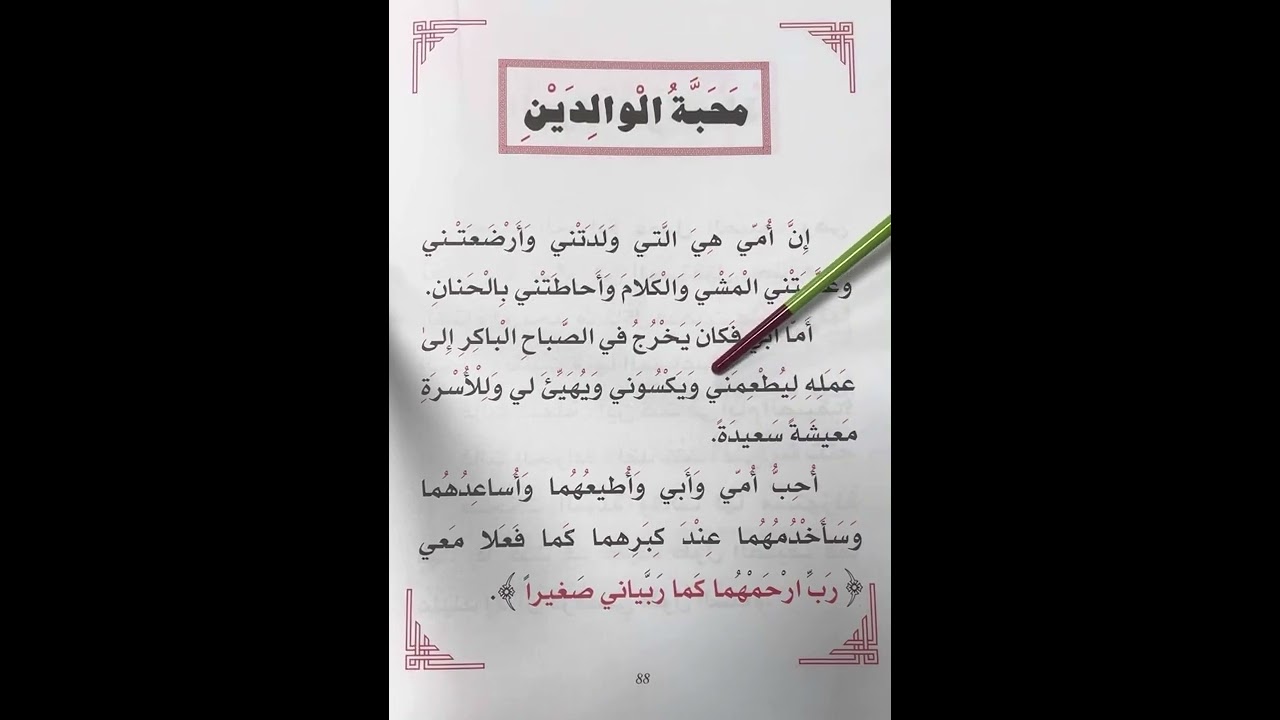 مَحَبَّةُ الْوالِدَيْنِ
إِنَّ أُمّي هِيَ الَّتي وَلَدَتْني وَأَرْضَعَتْـني
وَعَلَّمَتْني الْمَشْيَ وَالْكَلامَ وَأَحاطَتْني بِالْحَنانِ.
أَمّا أَبي فَكانَ يَخْرُجُ في الصَّباحِ الْباكِرِ إِلىٰ
عَمَلِهِ لِيُطْعِمَني وَيَكْسُوَني وَيُهَيِّئَ لي وَلِلْأُسْرَةِ
مَعيشَةً سَعيدَةً.
أُحِبُّ أُمّي وَأَبي وَأُطيعُهُما وَأُساعِدُهُما
وَسَأَخْدُمُهُما عِنْدَ كِبَرِهِما كَما فَعَلا مَعي
﴿رَبِّ ارْحَمْهُما كَما رَبَّياني صَغيراً﴾.
88